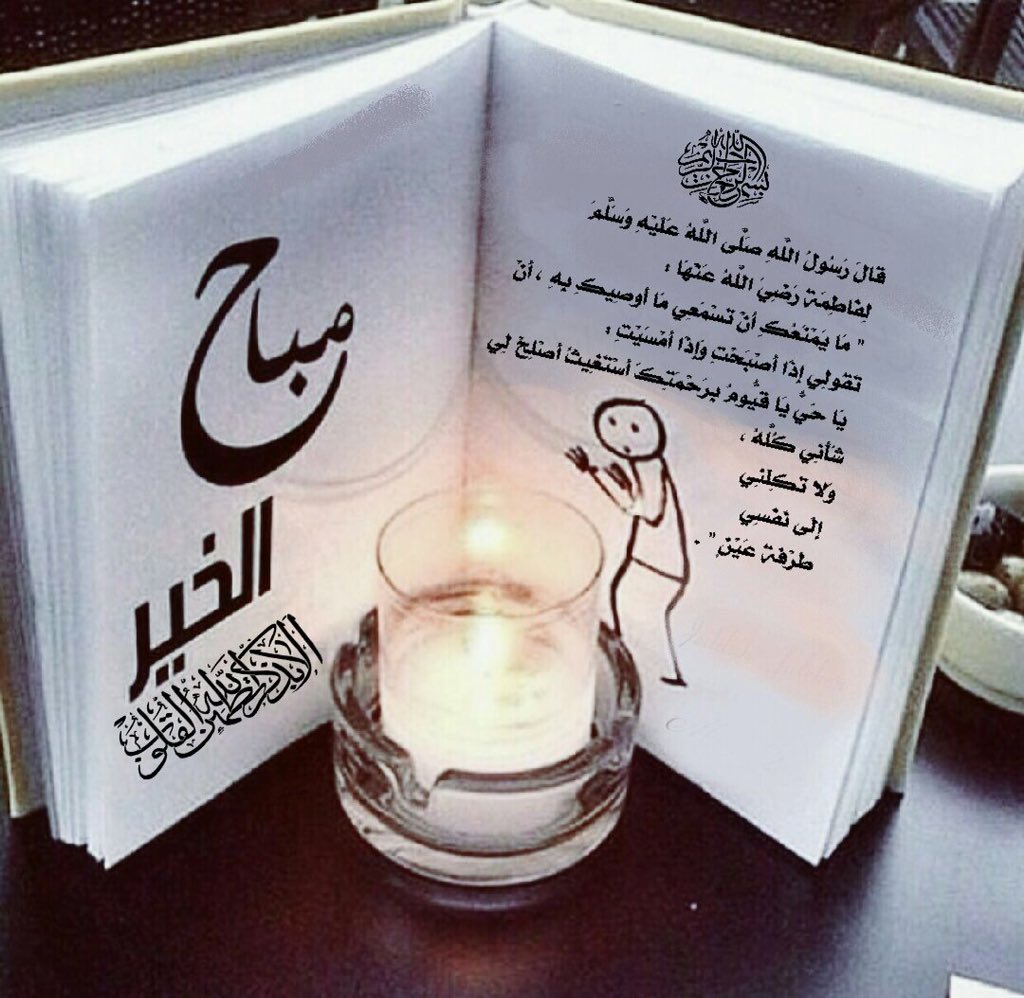 بسم الله الرحمن الرحيم
قالَ رَسُولَ اللَّهِ صَلَّى اللَّهُ عَلَيْهِ وَسَلَّمَ
لِفاطِمَة رَضْيَ اللَّهُ عَنْهَا :
" مَا يَمْنَعُكِ أنْ تَسْمَعي مَا أوصيكِ بِهِ ، أنْ
تَقولي إذَا أصْبَحْتِ وَإذَا أمْسَيْتِ :
يَا حَيُّ يَا قَيُّومُ بِرَحْمَتِكَ أسْتَغيثُ أصْلِحْ لِي
شَأنِي كُلَّهُ ،
وَلا تَكِلْنِي
إلى نَفْسِي
طَرْفَةَ عَيْنٍ" .
صباح
الخير
ألا بذكر الله تطمئن القلوب